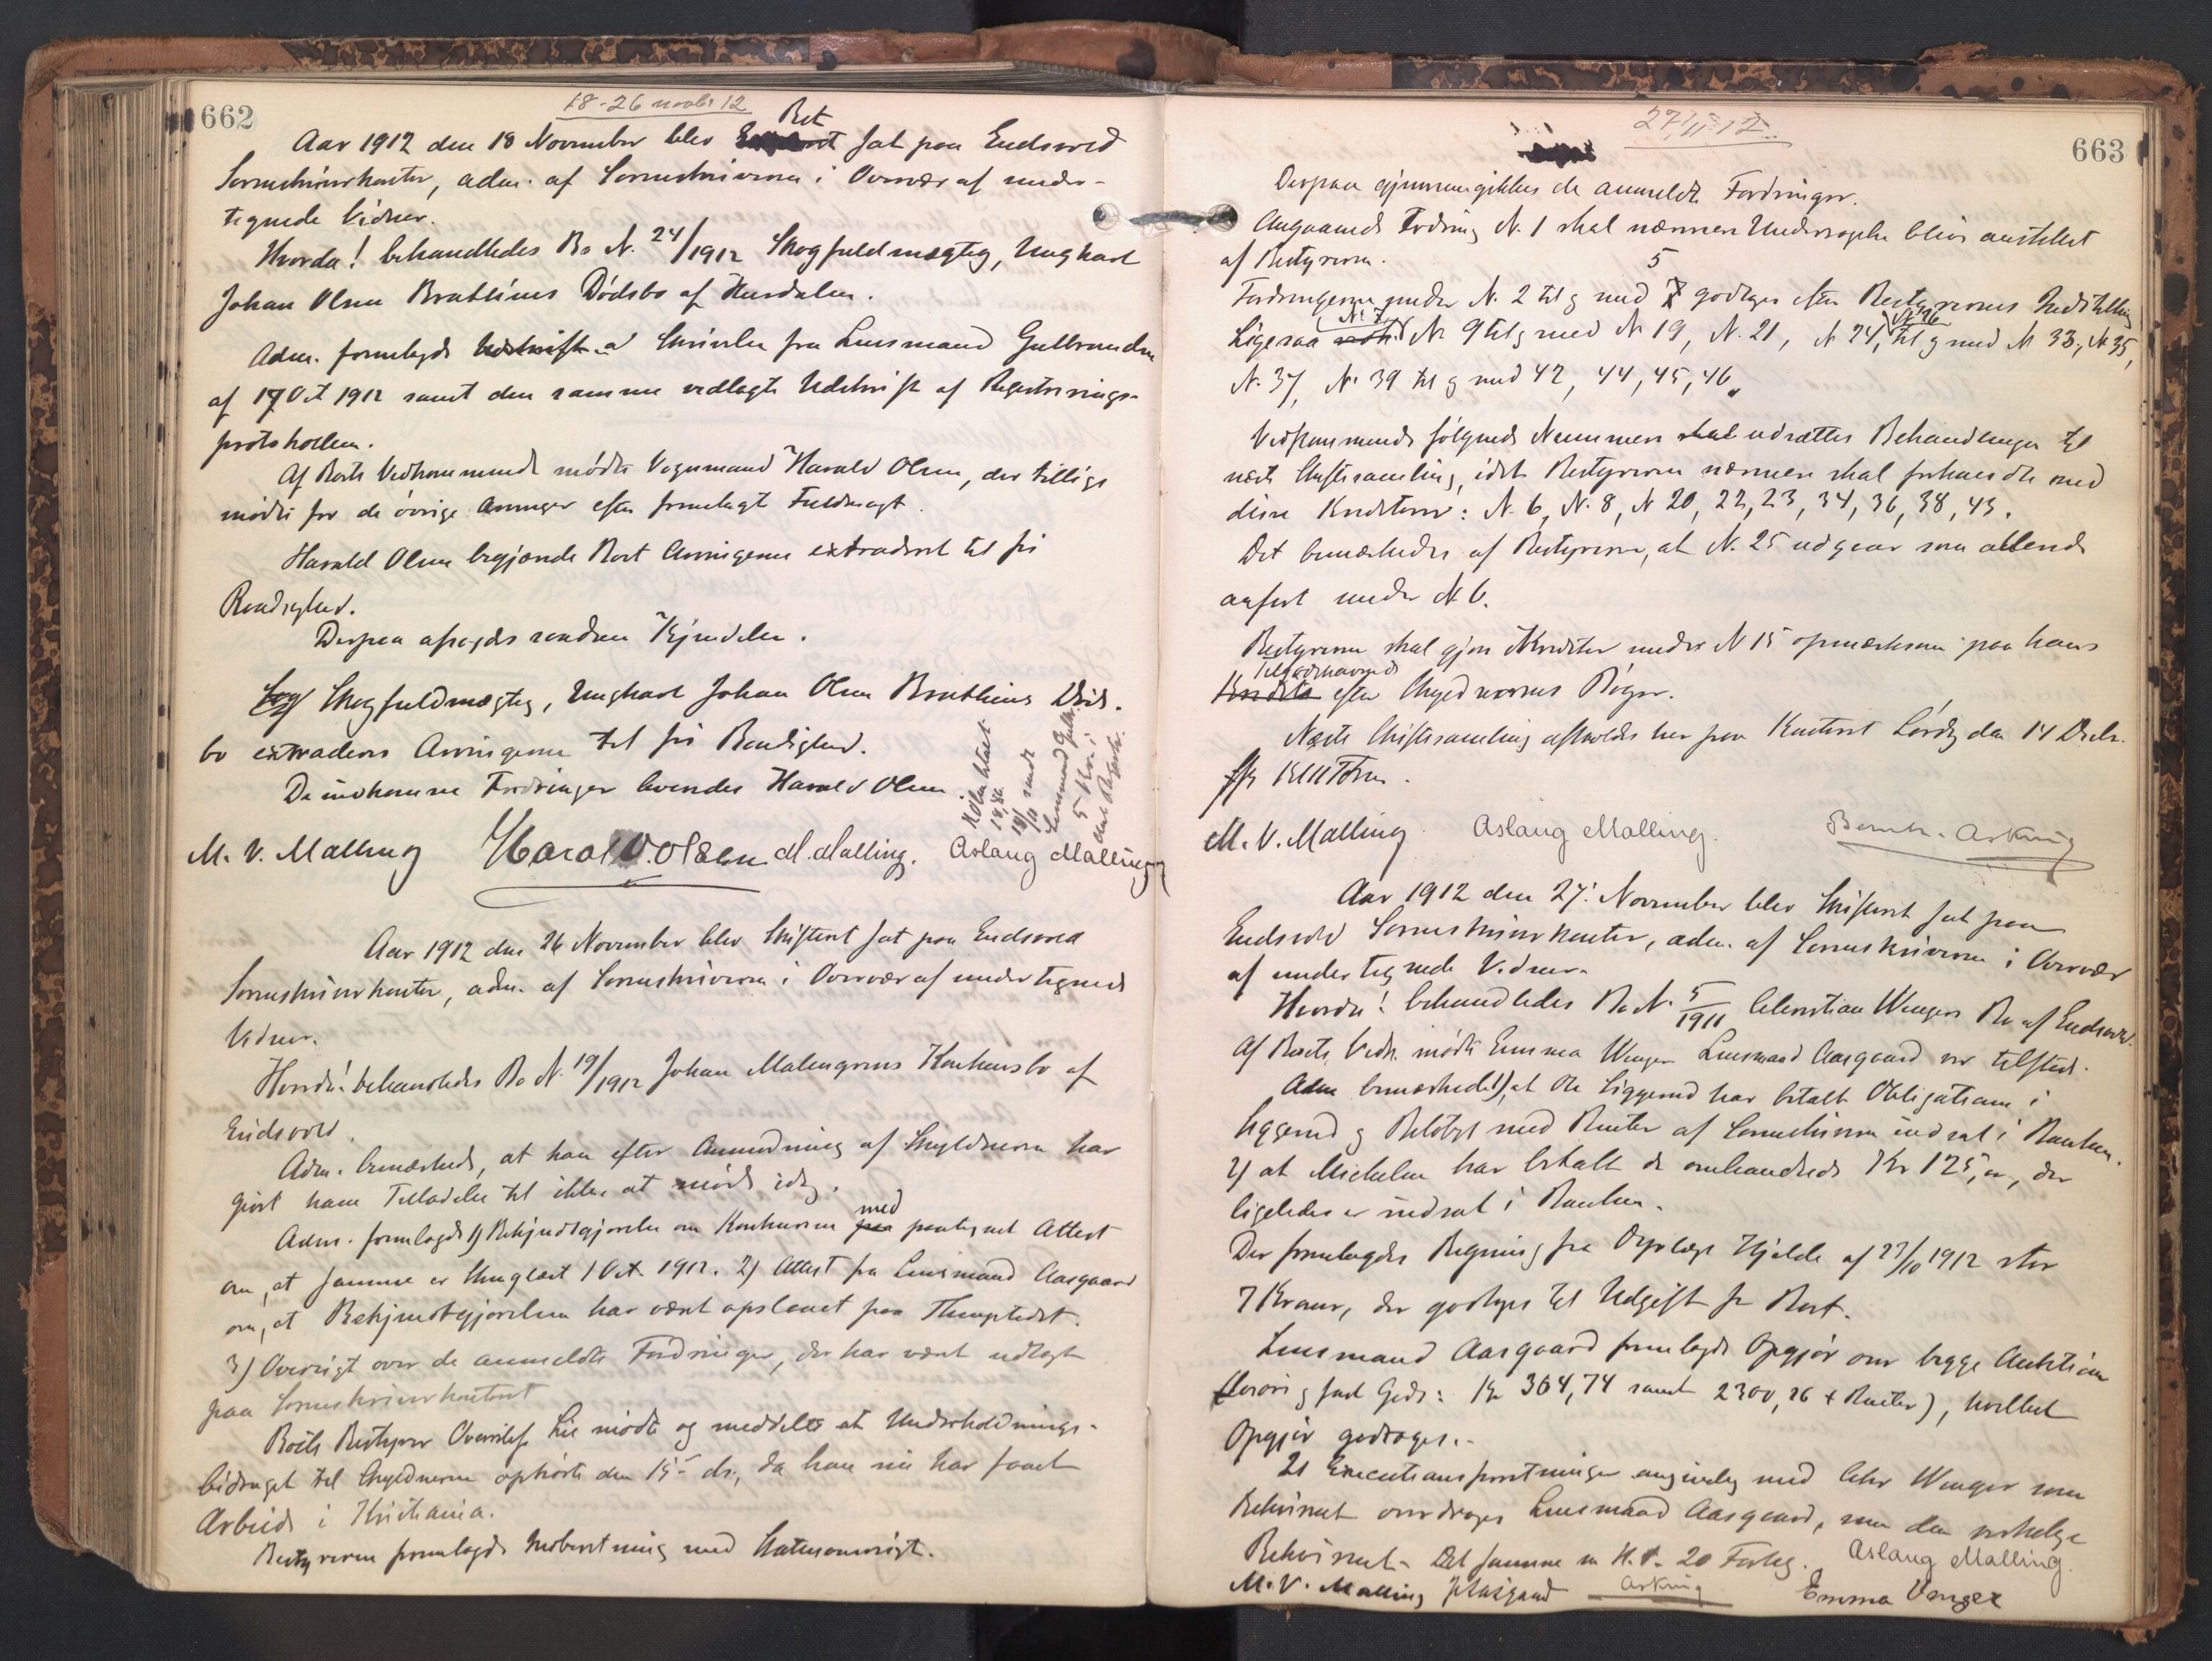 662
18-26 novbr 12
Ret
Aar 1912 den 18 November blev sat paa Eidsvold
Sorenskriverkontor, adm. af Sorenskriveren i Overvær af under-
tegnede Vidner.
Hvorda! behandledes Bo N. 24/1912 Skogfuldmægtig, Ungkarl
Johan Olsen Bratliens Dödsbo af Hurdalen.
Adm. fremlagde Udskrift a Skrivelse fra Lensmand Gulbrandsen
af 17 Oct 1912 samt den samme vedlagte Udskrift af Registrerings-
protokollen.
Af Boets Vedkommende mødte Vognmand Harald Olsen, der tillige
mödte for de övrige Arvinger efter fremlagt Fuldmagt.
Harald Olsen begjærede Boet Arvingerne extraderet til fri
Raadighed.
Derpaa afsagdes saadan Kjendelse.
Skogfuldmægtig, Ungkarl Johan Olsen Bratliens Döds-
bo extraderes Arvingerne til fri Raadighed.
De indkomne Fordringer leveredes Harald Olsen.
M. V. Malling Harald Olsen M. Malling. Aslaug Malling
Aar 1912 den 26 November blev Skifteret sat paa Eidsvold
Sorenskriverkontor, adm. af Sorenskriveren i Overvær af undertegnede
Vidner.
Hvorda! behandledes Bo N. 19/1912 Johan Malmgrens Konkursbo af
Eidsvold.
Adm. bemærkede, at han efter Anmodning af Skyldneren har
givet ham Tilladelse til ikke at møde idag.
med
Adm. fremlagde 1) Bekjendtgjørelse om Konkursen paa paategnet Attest
om, at samme er kunglæst 1 Oct. 1912. 2) Attest fra Lensmand Aasgaard
om, at Bekjendtgjørelsen har været opslaaet paa Thingstedet.
3) Oversigt over de anmeldte Fordringer, der har været udlagt
paa Sorenskriverkontoret
Boets Bestyrer Overretssf. Lie mödte og meddelte at Underholdnings-
bidraget til Skyldneren ophørte den 15- ds., da han nu har faaet
Arbeide i Kristiania.
Bestyreren fremlagde Indberetning med Statusoversigt.
27/11-12
663
Derpaa gjennemgikkes de anmeldte Fordringer.
Angaaende Fordring N. 1 skal nærmere Undersøgelse blive anstillet
af Bestyreren.
5
Fordringerne under N. 2 til og med godtages efter Bestyrerens Indstilling
Ligesaa N. 7, N. 9 til og med N 19, N. 21, N 24, N 26 til og med N 33, N 35,
N. 37, N. 39 til og med 42, 44, 45, 46.
Vedkommende fölgende Nummere udsættes Behandlingen til
næste Skiftesamling, idet Bestyreren nærmere skal forhandle med
disse Kreditorer: N. 6, N. 8, N 20, 22, 23, 34, 36, 38, 43.
Det bemærkedes af Bestyreren, at N. 25 udgaar som allerede
anført under N 6.
Bestyreren skal gjøre Kreditor under N 15 opmærksom paa hans
Tilgodehavende
efter Skyldnerens Bøger.
Næste Skiftesamling afholdes her paa Kontoret Lørdag den 14 Decbr.
M. V. Malling Aslaug Malling.
Aar 1912 den 27. November blev Skifteret sat paa
Eidsvold Sorenskriverkontor, adm. af Sorenskriveren i Overvær
af undertegnede Vidner.
Hvorda! behandledes Bo N. 5/1911 Wengers Bo af Eidsvold.
Af Boets Vedk. mødte Emma Wenger Lensmand Aasgaard var tilstede.
Adm bemærkede 1) at Ole Liggerud har betalt Obligationen i
Liggerud og Beløbet med Renter af Sorenskriveren indsat i Banken.
2) at Mickelsen har betalt de omhandlede Kr 125,00, der
ligeledes er indsat i Banken.
Der fremlagdes Regning fra Dyrlæge Hjelde af 27/10 1912 stor
7 Kroner, der godtages til Udgift for Boet.
Lensmand Aasgaard fremlagde Opgjør over begge Auktioner
(Løsøre og fast Gods: Kr 364,74 samt 2300,26 + Renter), hvilket
Opgjør godtages.-
21 Executionsforretninger angivelig med Wenger som
Rekvirent overdrages Lensmand Aasgaard, som den
Rekvirent- Det samme
M. V. Malling Aasgaard Aslaug Malling
Emma Venger